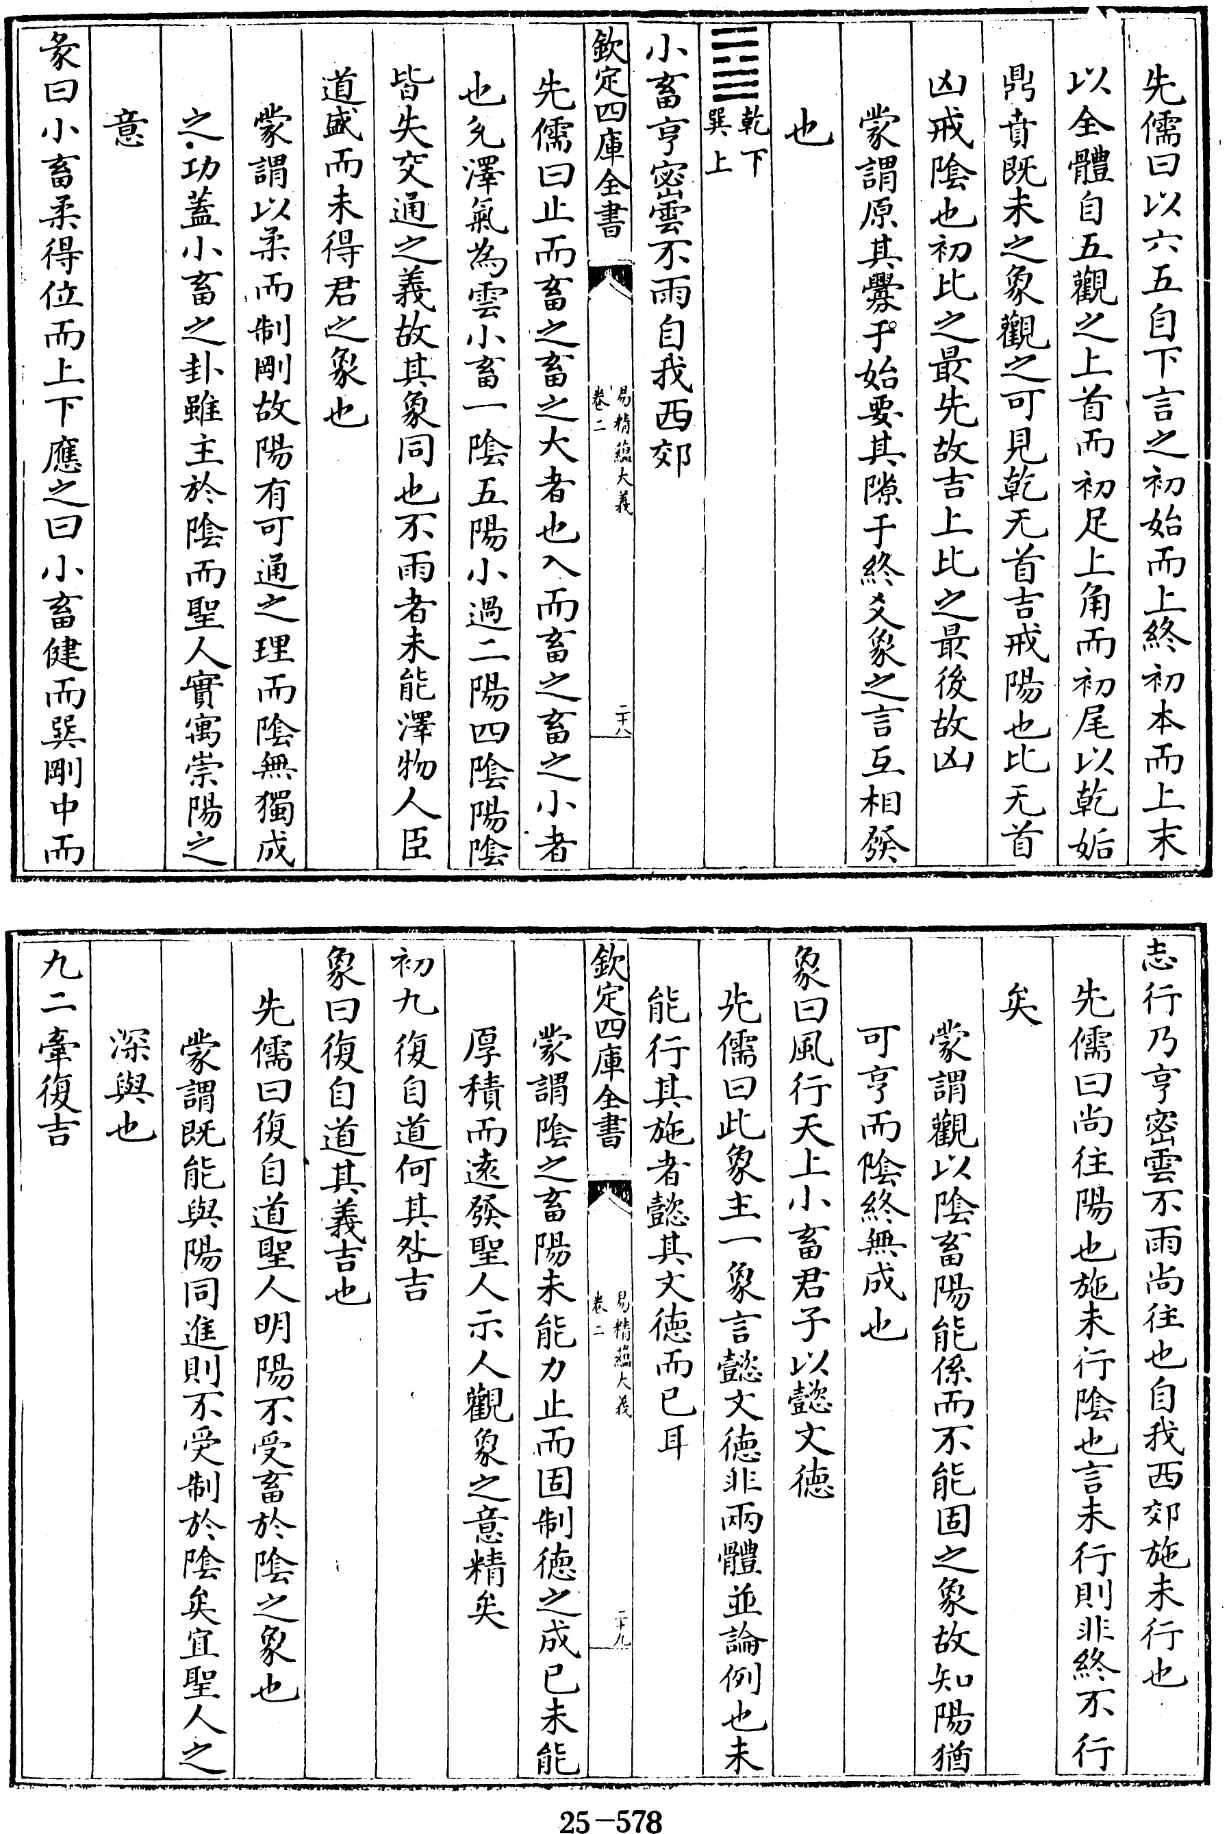 先儒曰以六五自下言之初始而上終初本而上末
以全體自五觀之上首而初足上角而初尾以乾姤
鼎賁既未之象觀之可見乾无首吉戒陽也比无首
凶戒陰也初比之最先故吉上比之最後故凶
蒙謂原其釁于始要其隙于終爻象之言互相發
也
䷈乾下
巽上
小畜亨密雲不雨自我西郊
欽定四庫全書
易精蘊大義
卷二
二十八
先儒曰止而畜之畜之大者也入而畜之畜之小者
也兌澤氣為雲小畜一陰五陽小過二陽四陰陽陰
皆失交通之義故其象同也不雨者未能澤物人臣
道盛而未得君之象也
蒙謂以柔而制剛故陽有可通之理而陰無獨成
之功蓋小畜之卦雖主於陰而聖人實寓崇陽之
意
彖曰小畜柔得位而上下應之曰小畜健而巽剛中而
志行乃亨密雲不雨尚往也自我西郊施未行也
先儒曰尚往陽也施未行陰也言未行則非終不行
矣
蒙謂觀以陰畜陽能係而不能固之象故知陽猶
可亨而陰終無成也
象曰風行天上小畜君子以懿文德
先儒曰此象主一象言懿文德非兩體並論例也未
能行其施者懿其文德而已耳
欽定四庫全書
易精蘊大義
卷二
二十九
蒙謂陰之畜陽未能力止而固制德之成已未能
厚積而遠發聖人示人觀象之意精矣
初九復自道何其咎吉
象曰復自道其義吉也
先儒曰復自道聖人明陽不受畜於陰之象也
蒙謂既能與陽同進則不受制於陰矣宜聖人之
深與也
九二牽復吉
25-578